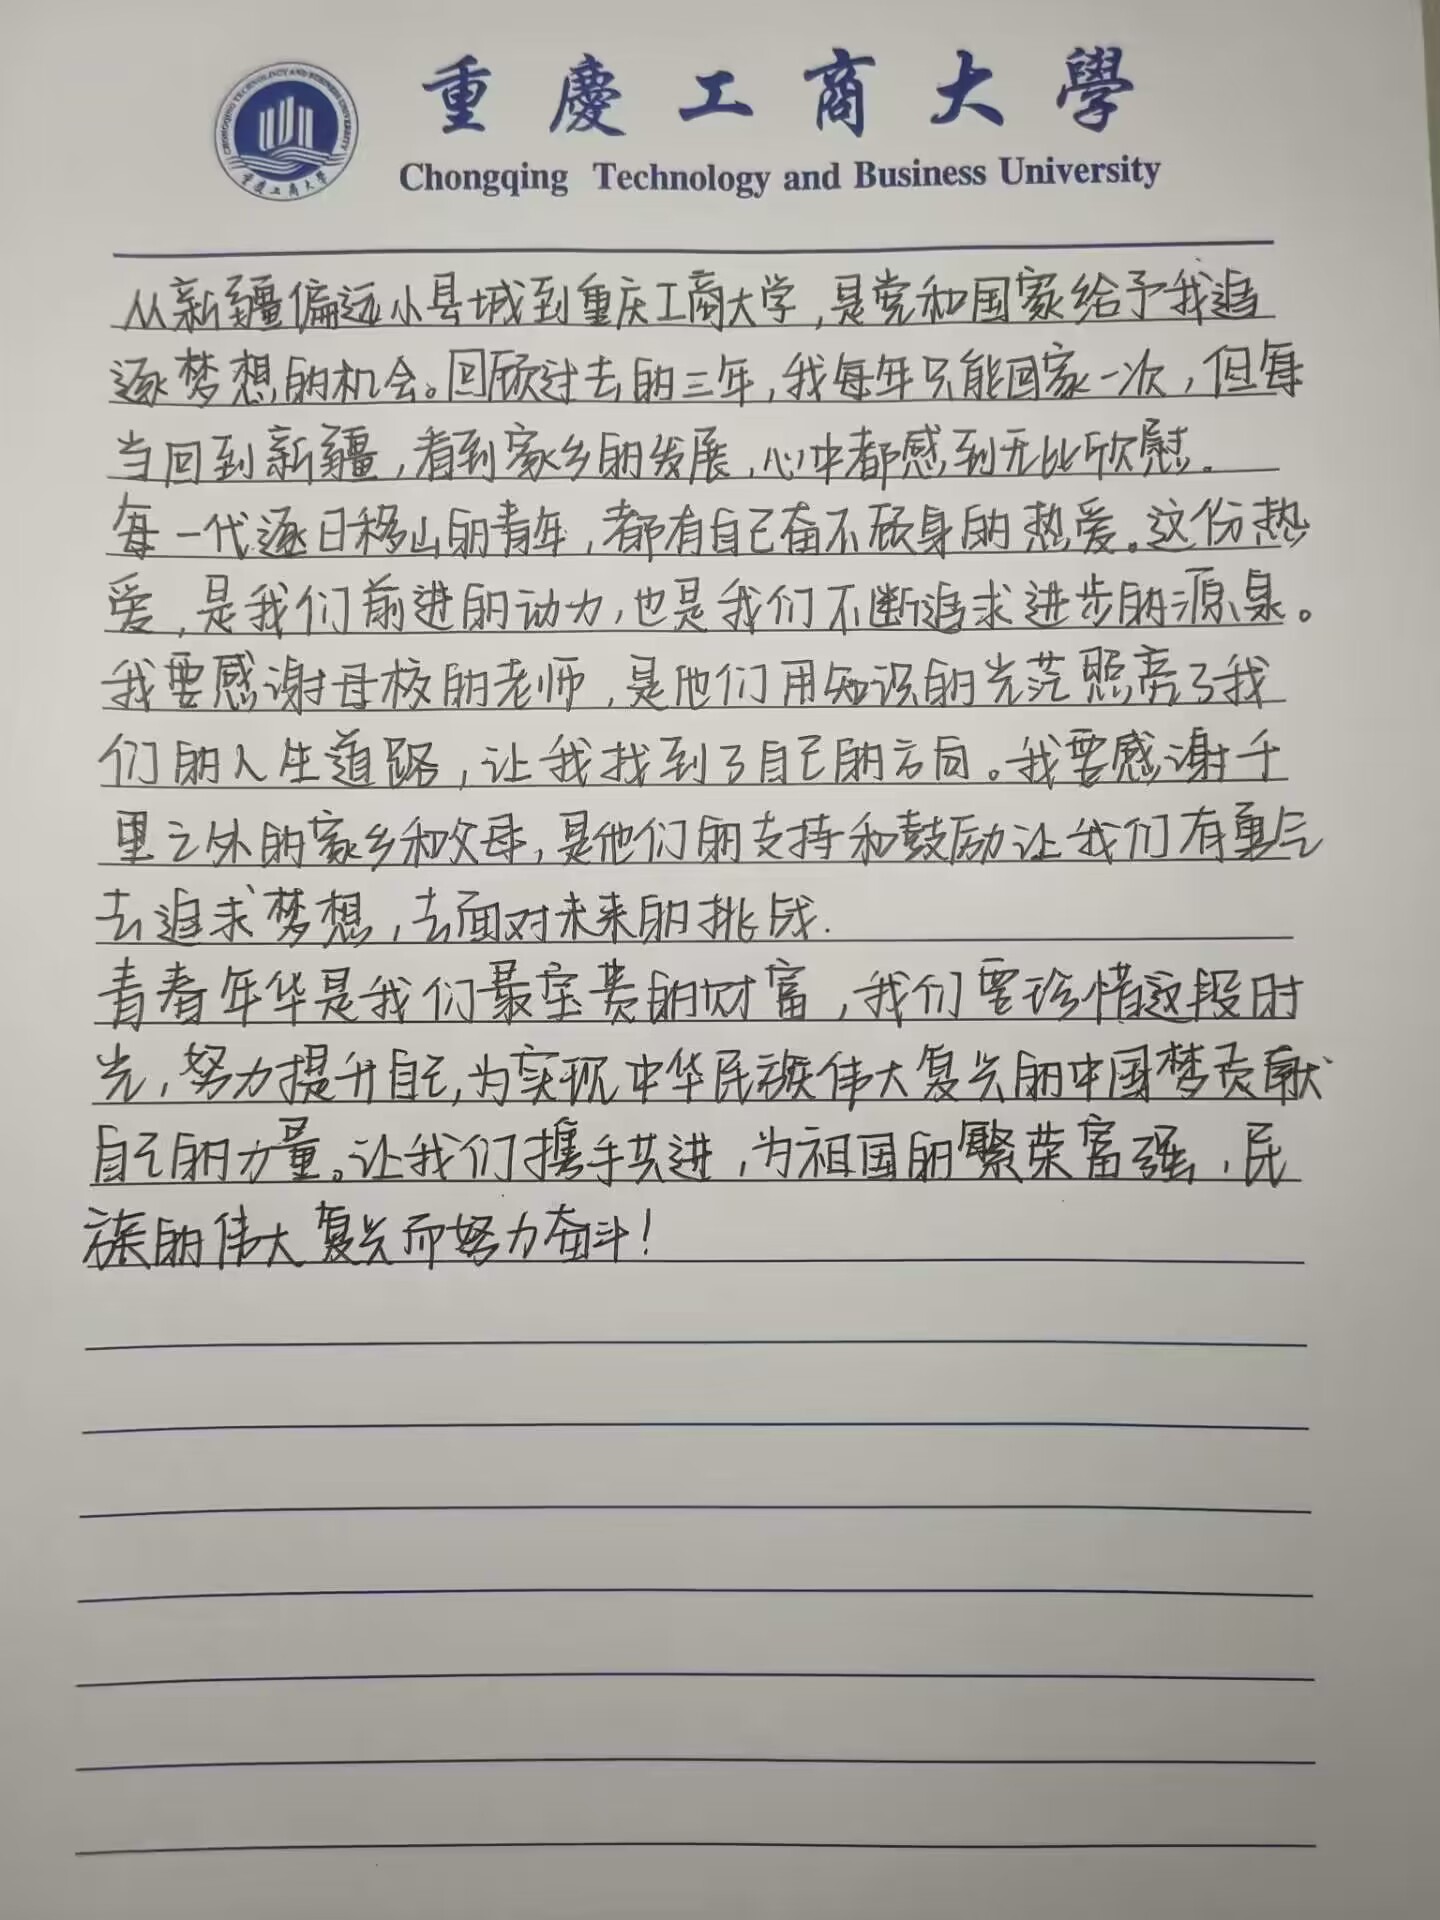 重慶工商大學
Chongqing Technology and Business University
CHONGQING TECHNOLOGY AND BUSINESS UNIVERSITY
重慶工商大學
从新疆偏远小县城到重庆工商大学,是党和国家给予我追
逐梦想的机会。回顾过去的三年,我每年只能回家一次,但每
当回到新疆,看到家乡的发展,心中都感到无比欣慰。
每一代逐日移山的青年,都有自己奋不顾身的热爱。这份热
爱,是我们前进的动力,也是我们不断追求进步的源泉。
我要感谢母校的老师,是他们用知识的光芒照亮了我
们的人生道路,让我找到了自己的方向。我要感谢千
里之外的家乡和父母,是他们的支持和鼓励让我们有勇气
去追求梦想,去面对未来的挑战.
青春年华是我们最宝贵的财富,我们要珍惜这段时
光,努力提升自己,为实现中华民族伟大复兴的中国梦贡献
自己的力量。让我们携手共进,为祖国的繁荣富强,民
族的伟大复兴而努力奋斗!